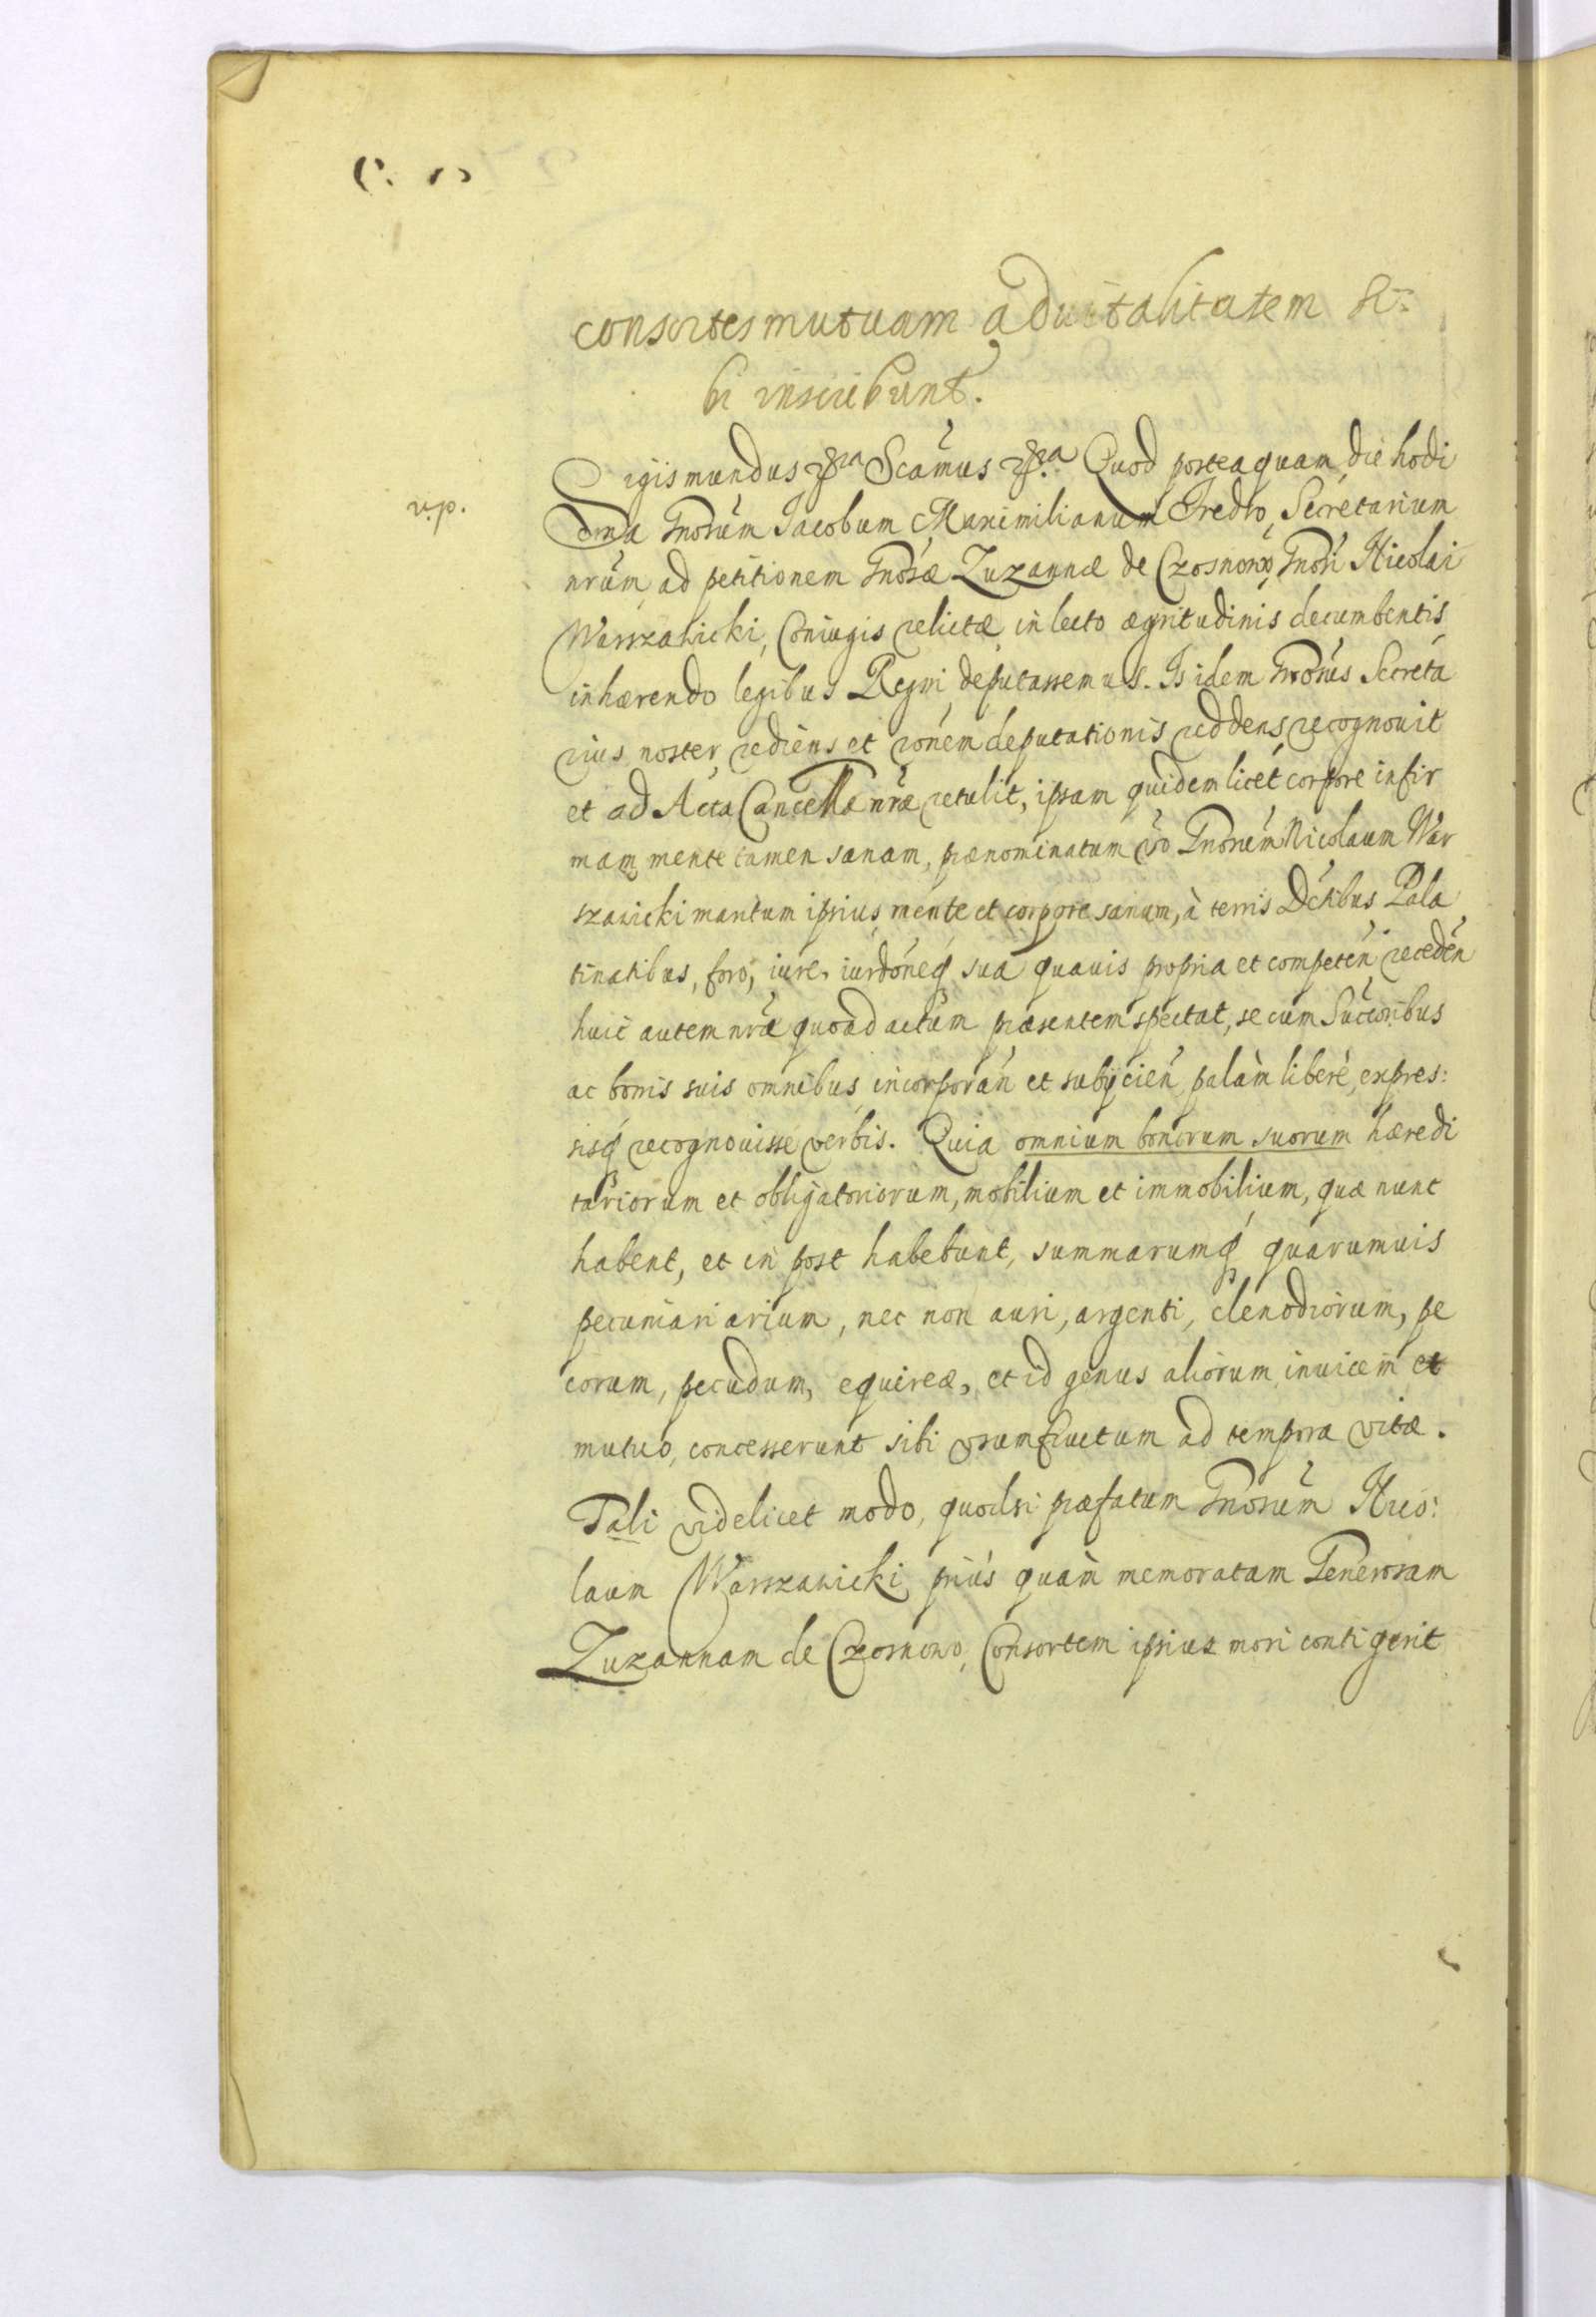 consortes mutuam advitalitatem si-
bi inscribunt.
Sigismundus &ra Scamus &ra Quod posteaquam die hodi
erna Gnosum Jacobum Maximilianum Fredro, Secretarium
nrum ad petitionem Gnosæ Zuzannæ de Czosnowo, Gnosi Nicolai
Warszawicki, Coniugis relictæ in lecto ægritudinis decumbentis
inhærendo legibus Regni deputassemus. Is idem Gnosus Secreta
rius noster rediens et ronem deputationis reddens recognouit
et ad Acta Cancellæ nræ retulit, ipsam quidem licet corpore infir
mam, mente tamen sanam, prænominatum vo Gnosum Nicolaum War
szawicki maritum ipsius mente et corpore sanum, à terris Dctibus Pala
tinatibus, foro, iure, iurdoneq sua quauis propria et competen receden
huic autem nræ quoad actum præsentem spectat, se cum Succoribus
ac bonis suis omnibus incorporan et subÿcien palàm liberè, expres:
sisq recognouisse verbis. Quia omnium bonorum suorum hæredi
tariorum et obligatoriorum, mobilium et immobilium, quæ nunc
habent, et in post habebunt, summarumq quarumuis
pecuniariarium, nec non auri, argenti, clenodiorum, pe
corum, pecudum, equireæ, et id genus aliorum inuicem et
mutuo, concesserunt sibi vsumfructum ad tempora vitæ.
Tali videlicet modo, quodsi præfatum Gnosum Nico:
laum Warszawicki priús quàm memoratam Generosam
Zuzannam de Czosnowo, Consortem ipsius mori contigerit